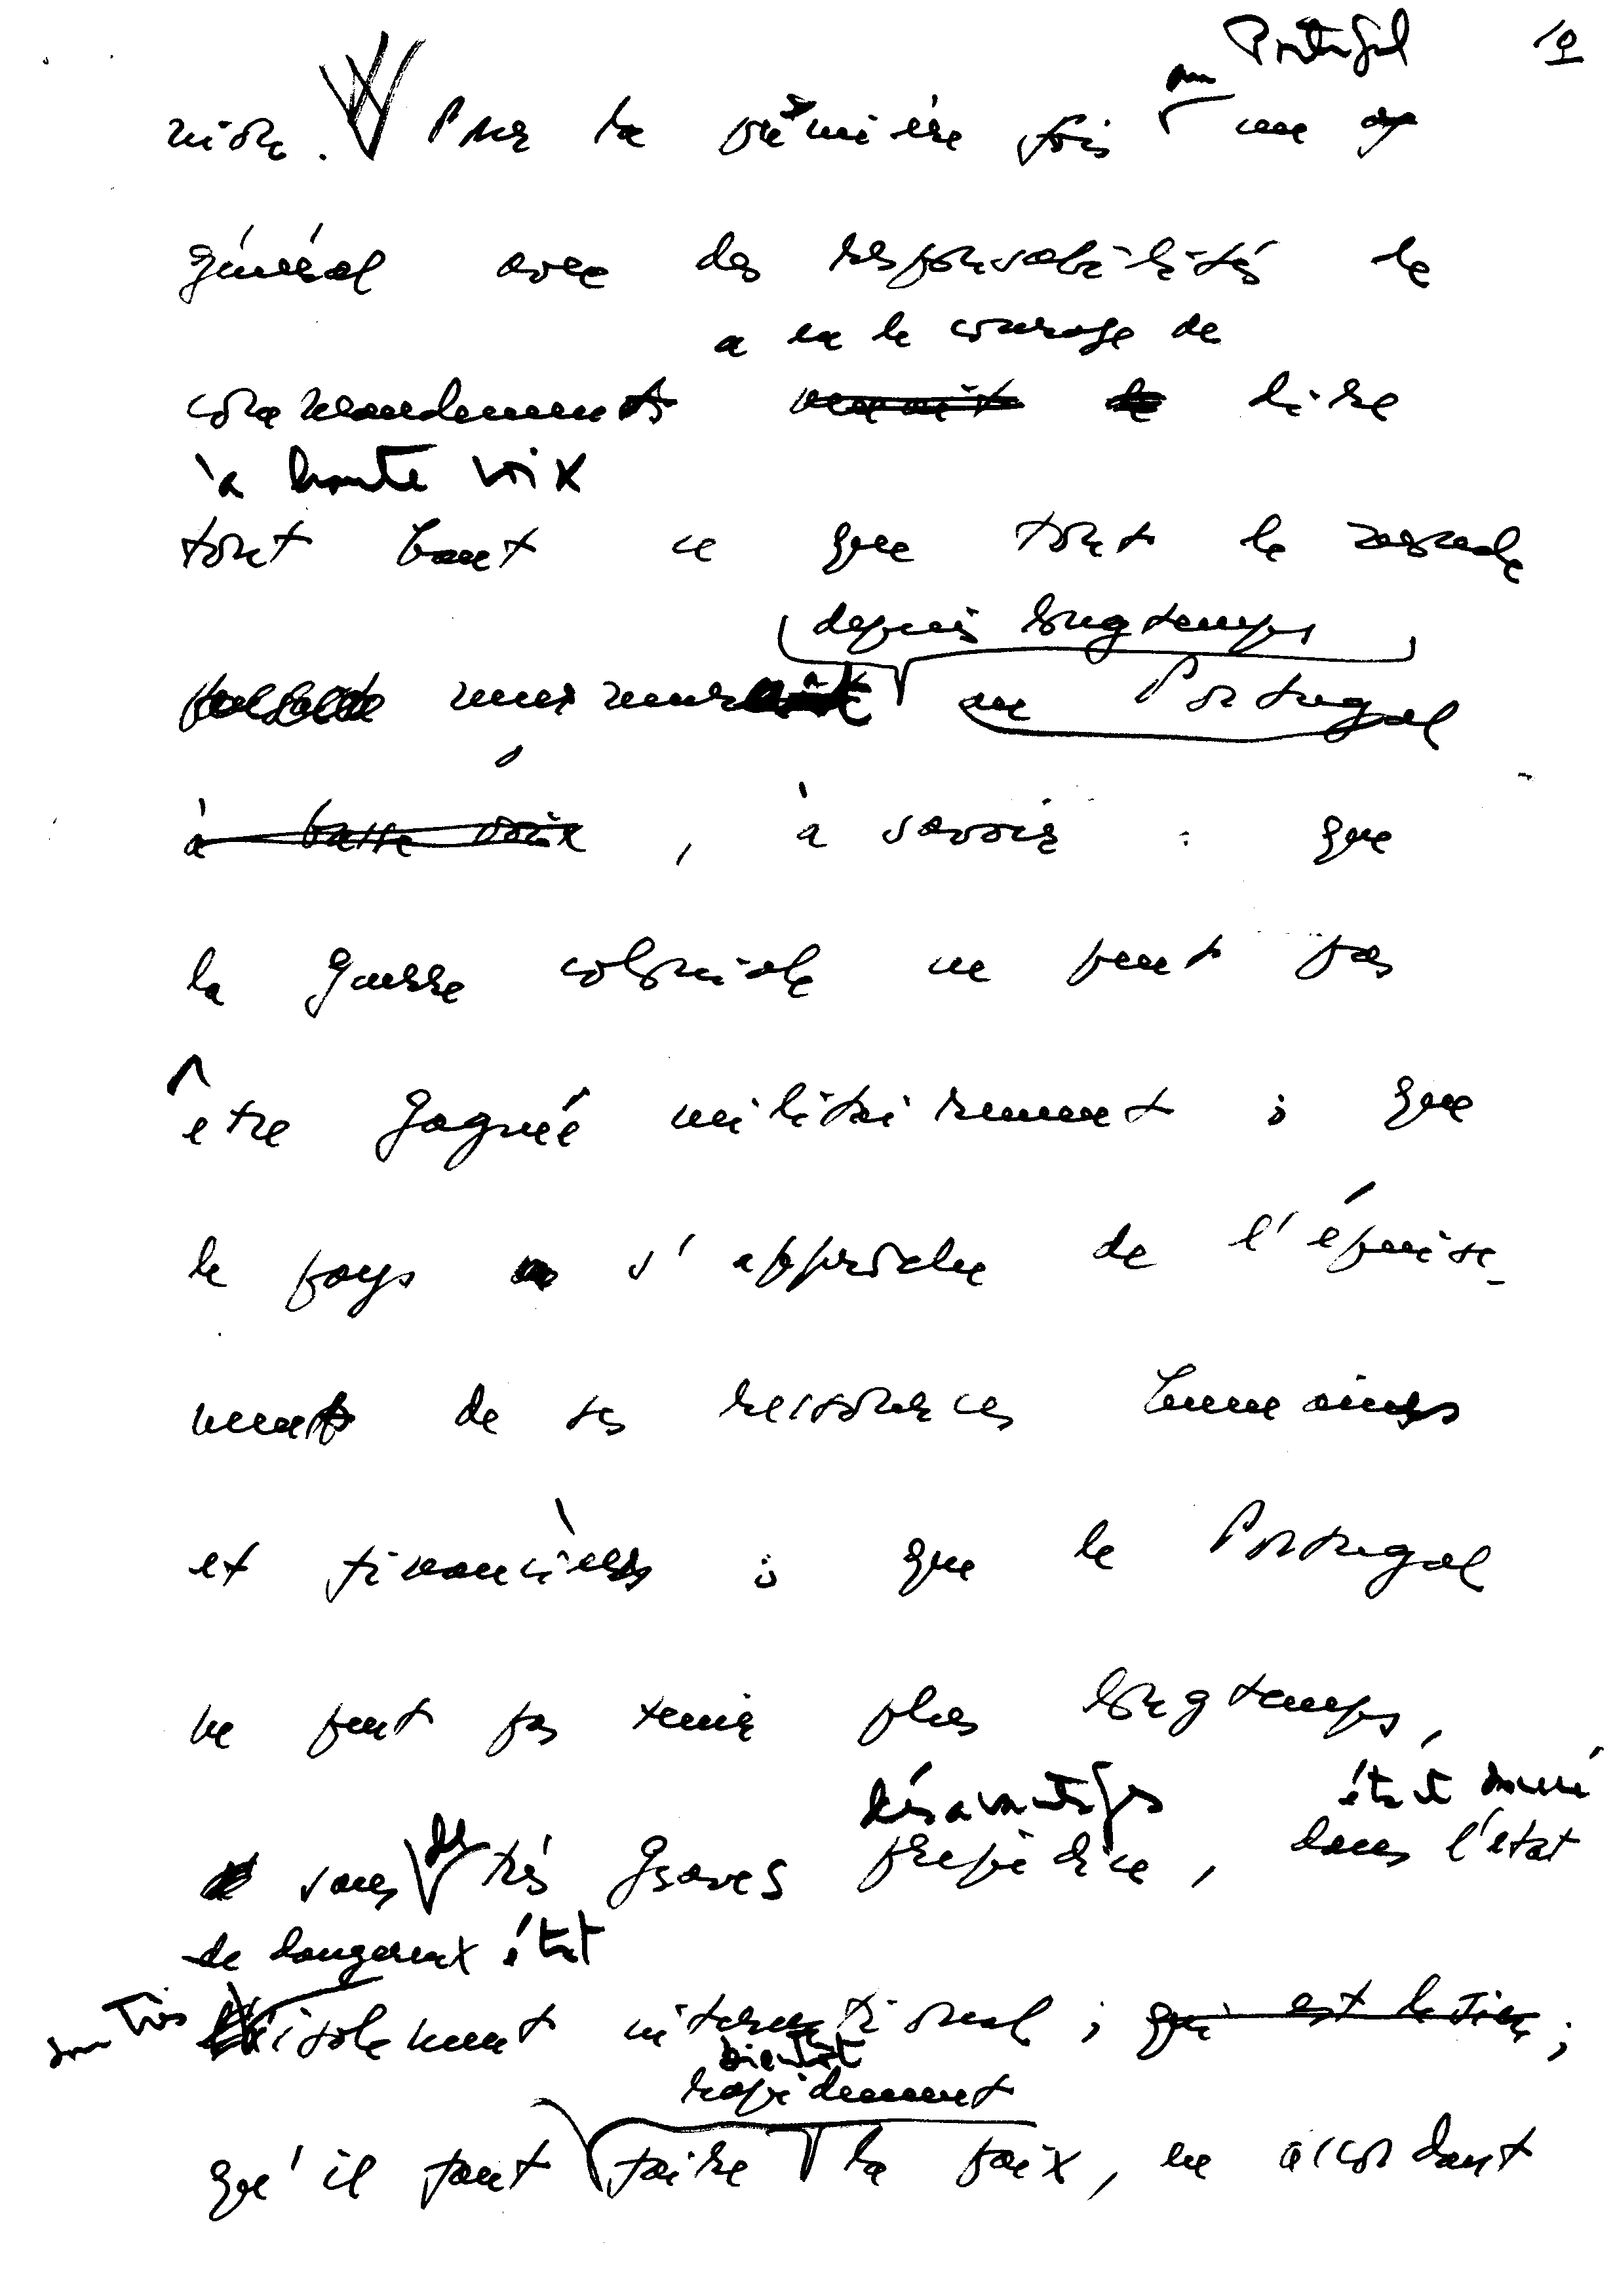 Portugal 10
au
nisre. Pour la première fois un
général avec des responsabilités de
a eu le courage de
commandements venait de dire
à haute voix
tout haut ce que tout le monde
depuis longtemps
murmurait au Portugal
à basse voix, à savoir : que
la guerre coloniale ne peut pas
être gagnée militairement ; que
le pays s'approche de l'épuise-
ment de ses ressources humaines
et financières ; que le Portugal
ne peut pas tenir plus longtemps,
désavantages étant donné
sans des très graves préjudice, dans l'état
de dangereux état
son très isolement international ; qui est le sien ;
bientôt
rapidement
qu'il faut faire la paix, en accordant